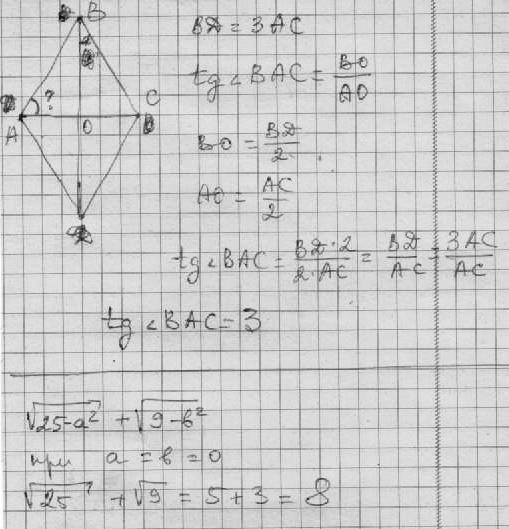 B
BД = 3 AC
tg ∠ BAC = BO / AO
? C
A O
BO = BД / 2
AO = AC / 2
tg ∠ BAC = BД · 2 / 2 · AC = BД / AC = 3 AC / AC
tg ∠ BAC = 3
√25 - a² + √9 - b²
при a = b = 0
√25 + √9 = 5 + 3 = 8